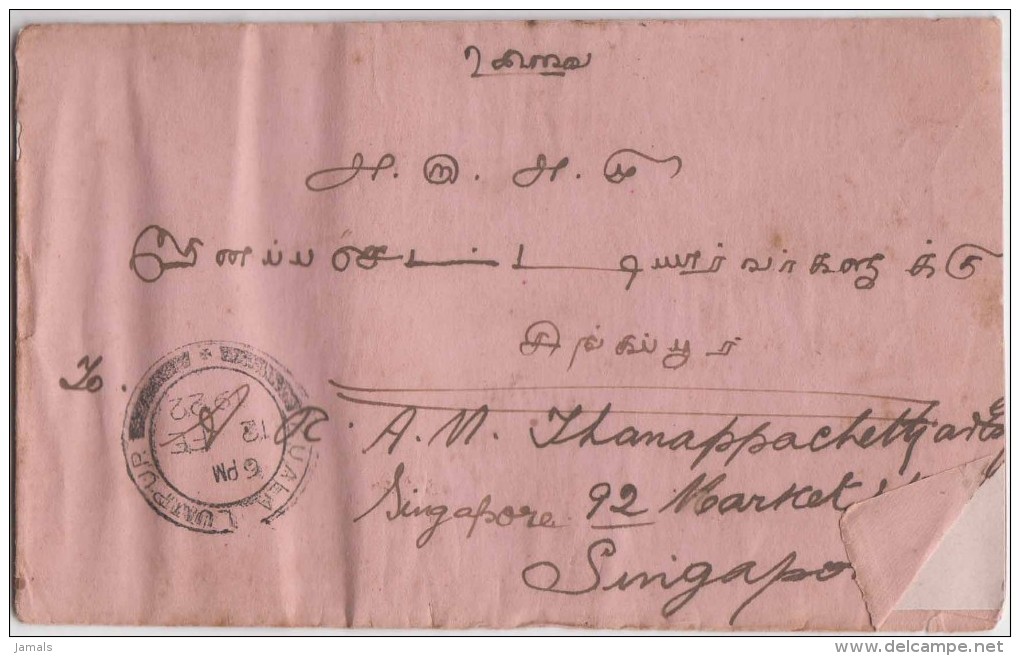 உ சிவமயம்
அ. றி. அ. மு
தீனப்ப செட்டியாரவர்களுக்கு
சிங்கப்பூர்
To.
A. R. A. M. Thanappachettyar
Singapore 92 Market
Singapo
KUALA LUMPUR
6 PM
12 FE
1922
Jamals
www.delcampe.net